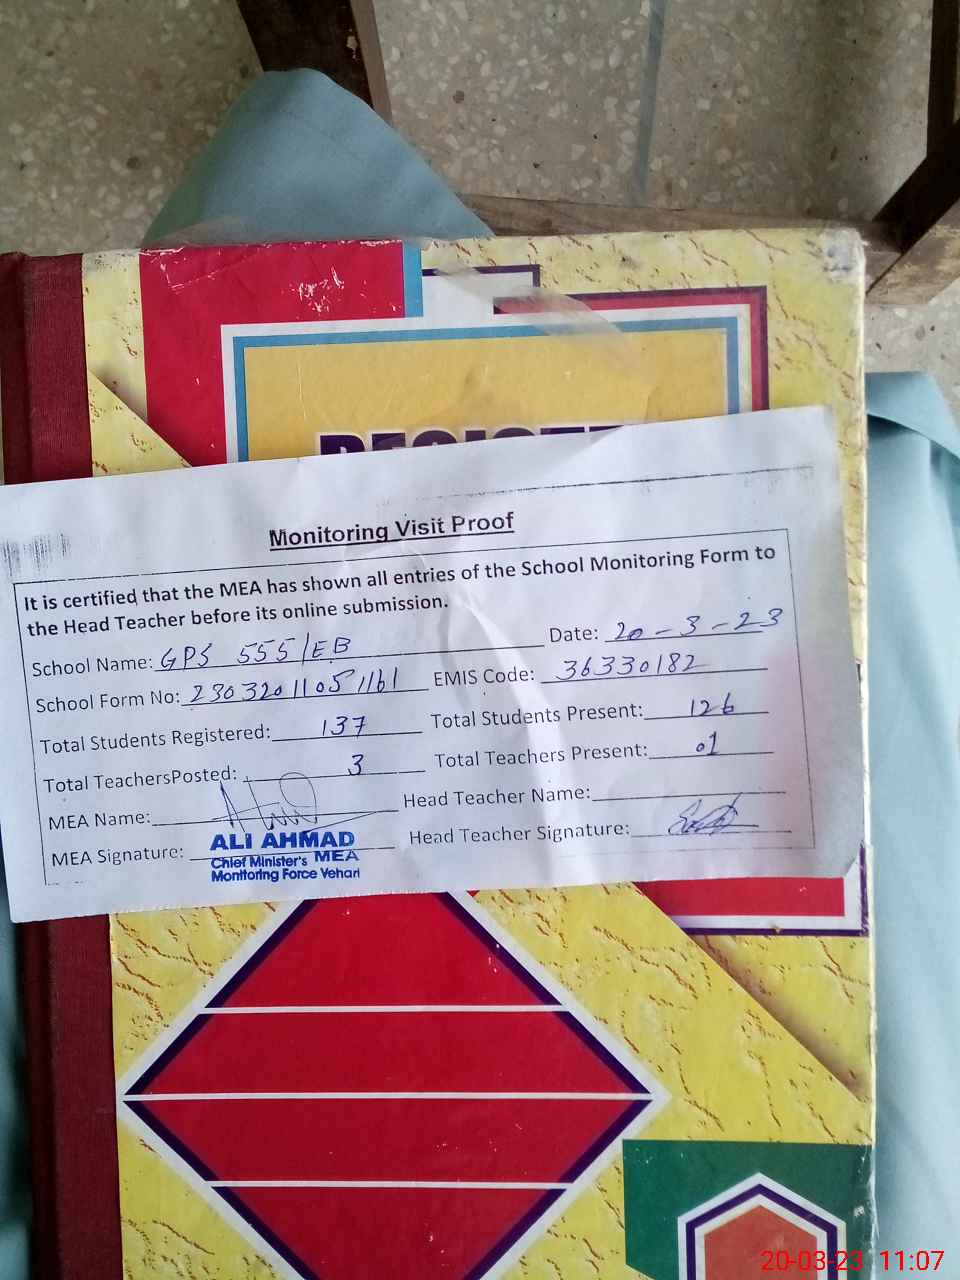 REGISTER
Monitoring Visit Proof
It is certified that the MEA has shown all entries of the School Monitoring Form to
the Head Teacher before its online submission.
School Name: GPS 555/EB Date: 20-3-23
School Form No: 23032011051161 EMIS Code: 36330182
Total Students Registered: 137 Total Students Present: 126
Total TeachersPosted: 3 Total Teachers Present: 01
MEA Name: Head Teacher Name:
MEA Signature: Head Teacher Signature:
ALI AHMAD
Chief Minister's MEA
Monitoring Force Vehari
20-03-23 11:07